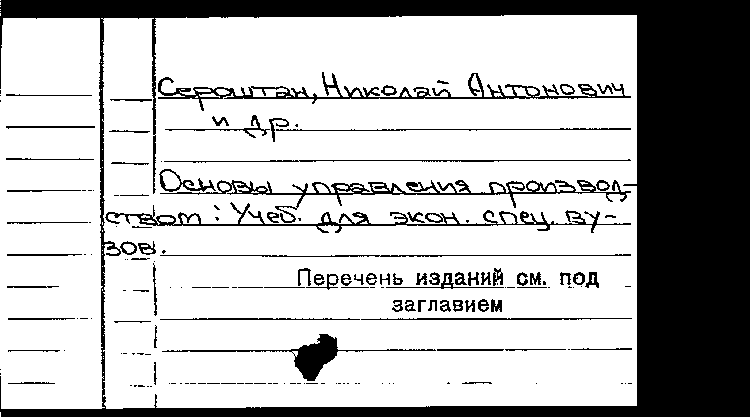 Сероштан, Николай Антонович
и др.
Основы управления производ-
ством : Учеб. для экон. спец. ву-
зов.
Перечень изданий см. под
заглавием